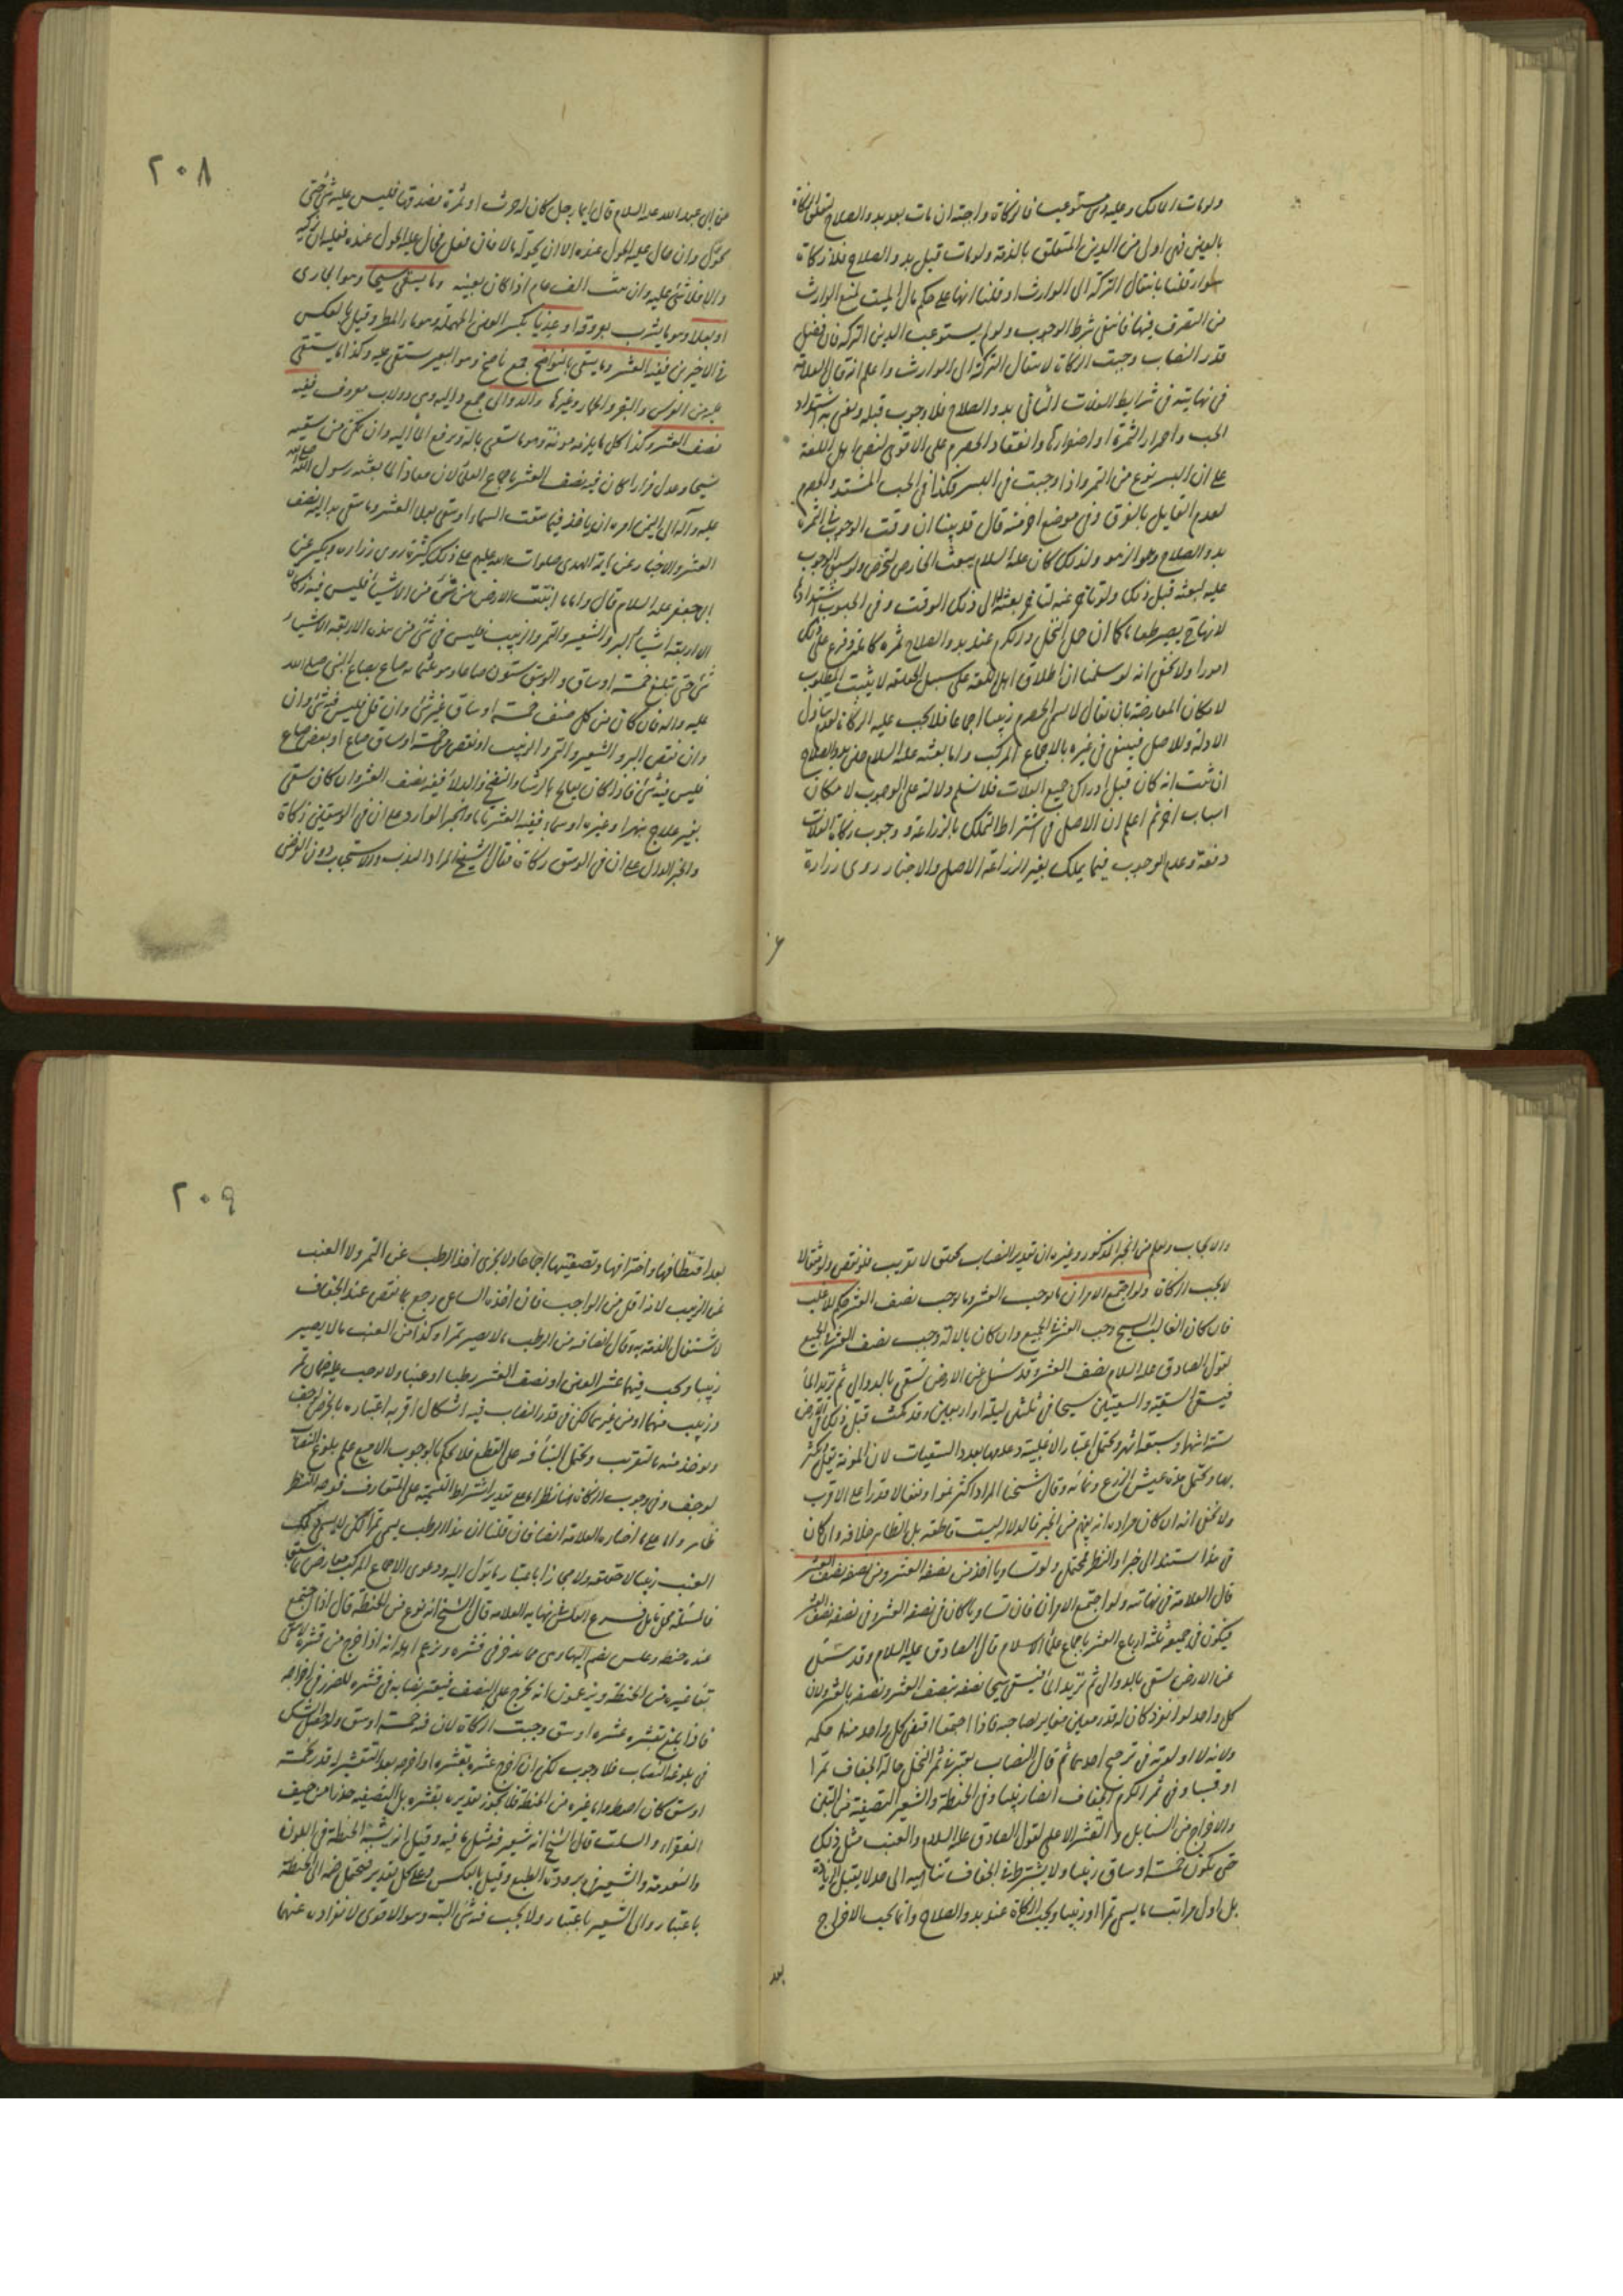 ولو مات المالك وعليه دين مستوعب فالزكاة واجبة ان مات بعد بدو الصلاح لتعلق الزكاة
بالعين فهي اولى من الدين المتعلق بالذمة ولو مات قبل بدو الصلاح فلا زكاة
سواء قلنا بانتقال التركة الى الوارث او قلنا انها على حكم مال الميت لمنع الوارث
من التصرف فيها فانتفى شرط الوجوب ولو لم يستوعب الدين التركة فان فضل
قدر النصاب وجبت الزكاة لانتقال التركة الى الوارث واعلم انه قال العلامة
في نهايته في شرايط الغلات الثاني بدو الصلاح فلا وجوب قبله ونعني به اشتداد
الحب واحمرار الثمرة او اصفرارها وانعقاد الحصرم على الاقوى لنص اهل اللغة
على ان البسر نوع من التمر واذا وجبت في البسر فكذا في الحب المشتد والحصرم
لعدم القايل بالفرق وفي موضع اخر منه قال قد بينا ان وقت الوجوب في الثمرة
بدو الصلاح وهو الزهو ولذلك كان عليه السلام يبعث الخارص للخرص ولو سبق الوجوب
عليه لبعثه قبل ذلك ولو تاخر عنه لتاخر بعثه الى ذلك الوقت وفي الحبوب اشتدادها
لانها ح يصير طعاما كما ان حمل النخل والكرم عند بدو الصلاح ثمرة كاملة وفرع على ذلك
امورا ولا يخفى انه لو سلمنا ان اطلاق اهل اللغة على سبيل الحقيقة لا يثبت المطلوب
لامكان المعارضة بان يقال لا يسمى الحصرم زبيبا اجماعا فلا يجب عليه الزكاة لعدم تناول
الادلة وللاصل فينتفي في غيره بالاجماع المركب واما بعثه عليه السلام حين بدو الصلاح
ان ثبت انه كان قبل ادراك جميع الغلات فلا نسلم دلالته على الوجوب لامكان
اسباب اخر ثم اعلم ان الاصل في اشتراط التملك بالزراعة و وجوب زكاة الغلات
دفعة وعدم الوجوب فيما يملك بغير الزراعة الاصل والاخبار روى زرارة
٢٠٨
عن ابي عبد الله عليه السلام قال ايما رجل كان له حرث او ثمرة فصدقها فليس عليه شئ حتى
يحول وان حال عليه الحول عنده الا ان يحوله مالا فان فعل فحال عليه الحول عنده فعليه ان يزكيه
والا فلا شئ عليه وان ثبت الف عام اذا كان بعينه وما يسقى سيحا وهو الجاري
او بعلا وهو ما يشرب بعروقه او عذيا بكسر العين المهملة وهو ماء المطر وقيل بالعكس
في الاخيرين ففيه العشر وما يسقى بالنواضح جمع ناضح وهو البعير يستقى عليه وكذا ما يستقى
عليه من الفرس والبقر والحمار وغيرها والدوالي جمع دالية وهي دولاب معروف ففيه
نصف العشر وكذا كل ما يلزمه مؤنة وهو ما سقي بآلة ويرفع الماء اليه وان تمكن من سقيه
سيحا وعدل فرارا كان فيه نصف العشر باجماع العلماء لان معاذا لما بعثه رسول الله صلى الله
عليه وآله الى اليمن امره ان ياخذ فيما سقت السماء او سقي بعلا العشر وما سقي بدالية نصف
العشر والاخبار عن ائمة الهدى صلوات الله عليهم على ذلك كثيرة روى زرارة وبكير عن
ابي جعفر عليه السلام قال واما ما انبتت الارض من شئ من الاشياء فليس فيه زكاة
الا اربعة اشياء البر والشعير والتمر والزبيب فليس في شئ من هذه الاربعة الاشياء
شئ حتى تبلغ خمسة اوساق والوسق ستون صاعا وهو ثلثمائة صاع بصاع النبي صلى الله
عليه وآله فان كان من كل صنف خمسة اوساق غير شئ وان قل فليس فيه شئ وان
وان نقص البر والشعير والتمر والزبيب او نقص من خمسة اوساق صاع او بعض صاع
فليس فيه شئ فاذا كان يعالج بالرشاء والنضح والدلاء ففيه نصف العشر وان كان سقي
بغير علاج بنهر او غيره او سماء ففيه العشر تاما والخبر الوارد على ان في الوسقين زكاة
والخبر الدال على ان في الوسق زكاة فقال الشيخ المراد الندب والاستحباب دون الفرض
والايجاب ويعلم من الخبر المذكور وغيره ان تقدير النصاب تحقيق لا تقريب فلو نقص ولو مثقالا
لا يجب الزكاة ولو اجتمع الامران ما يوجب العشر وما يوجب نصف العشر حكم للاغلب
فان كان الغالب السيح وجب العشر في الجميع وان كان بالآلة وجب نصف العشر في الجميع
لقول الصادق عليه السلام نصف العشر وقد سئل عن الارض تسقى بالدوالي ثم تزيد الماء
فيسقى السقية والسقيتين سيحا في ثلثين ليلة او اربعين وقد مكث قبل ذلك في الارض
ستة اشهر او سبعة اشهر ويحتمل اعتبار الاغلبية وعدمها بعدد السقيات لان المؤنة تقل وتكثر
بها ويحتمل مدة عيش الزرع ونمائه وقال شيخنا المراد اكثر نموا ونفعا لا قدرا على الاقرب
ولا يخفى انه ان كان مراده انه يفهم من الخبر فالدلالة ليست قاطعة بل الظاهر خلافه وان كان
في هذا استند الى خبر او النظر فمحتمل ولو تساويا اخذ من نصفه العشر ومن نصفه نصف العشر
قال العلامة في نهايته ولو اجتمع الامران فان تساويا كان في نصفه العشر وفي نصفه نصف العشر
فيكون في جميعه ثلثة ارباع العشر باجماع علماء الاسلام قال الصادق عليه السلام وقد سئل
عن الارض تسقى بالدوالي ثم تزيد الماء فيسقى سيحا نصفه بنصف العشر ونصفه بالعشر ولان
كل واحد لو انفرد كان له قدر معين مغاير لصاحبه فاذا اجتمعا اقتضى كل واحد منهما حكمه
ولانه لا اولوية في ترجيح احدهما ثم قال النصاب يعتبر في ثمر النخل حالة الجفاف تمرا
او قسبا وفي ثمر الكرم الجفاف ايضا زبيبا وفي الحنطة والشعير التصفية من التبن
والاخراج من السنابل والقشر الاعلى لقول الصادق عليه السلام والعنب مثل ذلك
حتى يكون خمسة اوساق زبيبا ولا يشترط في الجفاف تناهيه الى حد لا يقبل الزيادة
بل اول مراتب ما يسمى تمرا او زبيبا ويجب الزكاة عند بدو الصلاح وانما يجب الاخراج
بعد
٢٠٩
بعد اقتطافها واخترافها وتصفيتها اجماعا ولا يجزى اخذ الرطب عن التمر ولا العنب
عن الزبيب لانه اقل من الواجب فان اخذه الساعي رجع بما نقص عند الجفاف
لاشتغال الذمة به وقال ايضا فيه من الرطب ما لا يصير تمرا وكذا من العنب ما لا يصير
زبيبا ويجب فيهما عشر العين او نصف العشر رطبا او عنبا ولا يوجب عليه ضمان تمر
وزبيب منهما او من غيرهما لكن في قدر النصاب فيه اشكال اقربه اعتباره بالخرص لو جف
ويؤخذ منه بالتقريب ويحتمل البناء فيه على القطع فلا يحكم بالوجوب الا مع علم بلوغ النصاب
لو جف وفي وجوب الزكاة هنا نظر اما على تقدير اشتراط التسمية على المتعارف فوجه النظر
ظاهر واما على ما اختاره العلامة ايضا فان قلنا ان هذا الرطب يسمى تمرا لكن لا يسمى ذلك
العنب زبيبا لا حقيقة ولا مجازا باعتبار ما يؤول اليه ودعوى الاجماع المركب معارض بما سبق
فالمسئلة محل تامل فرع العلس في نهاية العلامة قال الشيخ انه نوع من الحنطة قال اذا اجتمع
عنده حنطة وعلس ضم اليها وهي ما يدخر في قشره وزعم اهله انه اذا اخرج من قشره لا يبقى
بقاء غيره من الحنطة ويزعمون انه يخرج على النصف فيعتبر نصابه في قشره للضرر في اخراجه
فاذا بلغ بقشره عشرة اوسق وجبت الزكاة لان فيه خمسة اوسق ولو حصل الشك
في بلوغه النصاب فلا وجوب لكن ان اخرج عشره بقشره او اخرجه بعد التقشير له قدر بخمسة
اوسق كان احوط واما غيره من الحنطة فلا يجوز تقديره بقشره بل التصفية حذرا من حيف
الفقراء والسلت قال الشيخ انه شعير فيه مثل ما فيه وقيل انه يشبه الحنطة في اللون
والنعومة والشعير في برودة الطبع وقيل بالعكس وعلى كل تقدير يحتمل ضمه الى الحنطة
باعتبار والى الشعير باعتبار ولا يجب فيه شئ البتة وهو الاقوى لانفراده عنهما